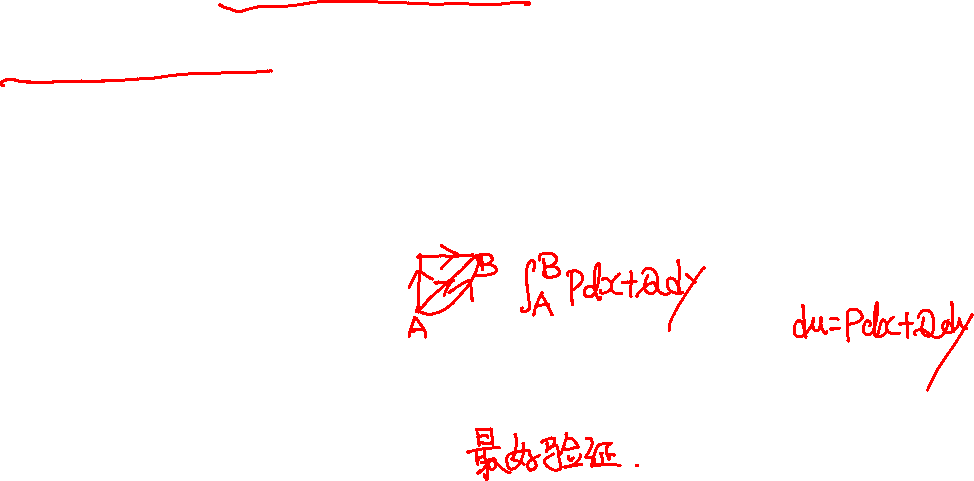 B ∫_A^B Pdx+Qdy
A
du=Pdx+Qdy
最好验证.